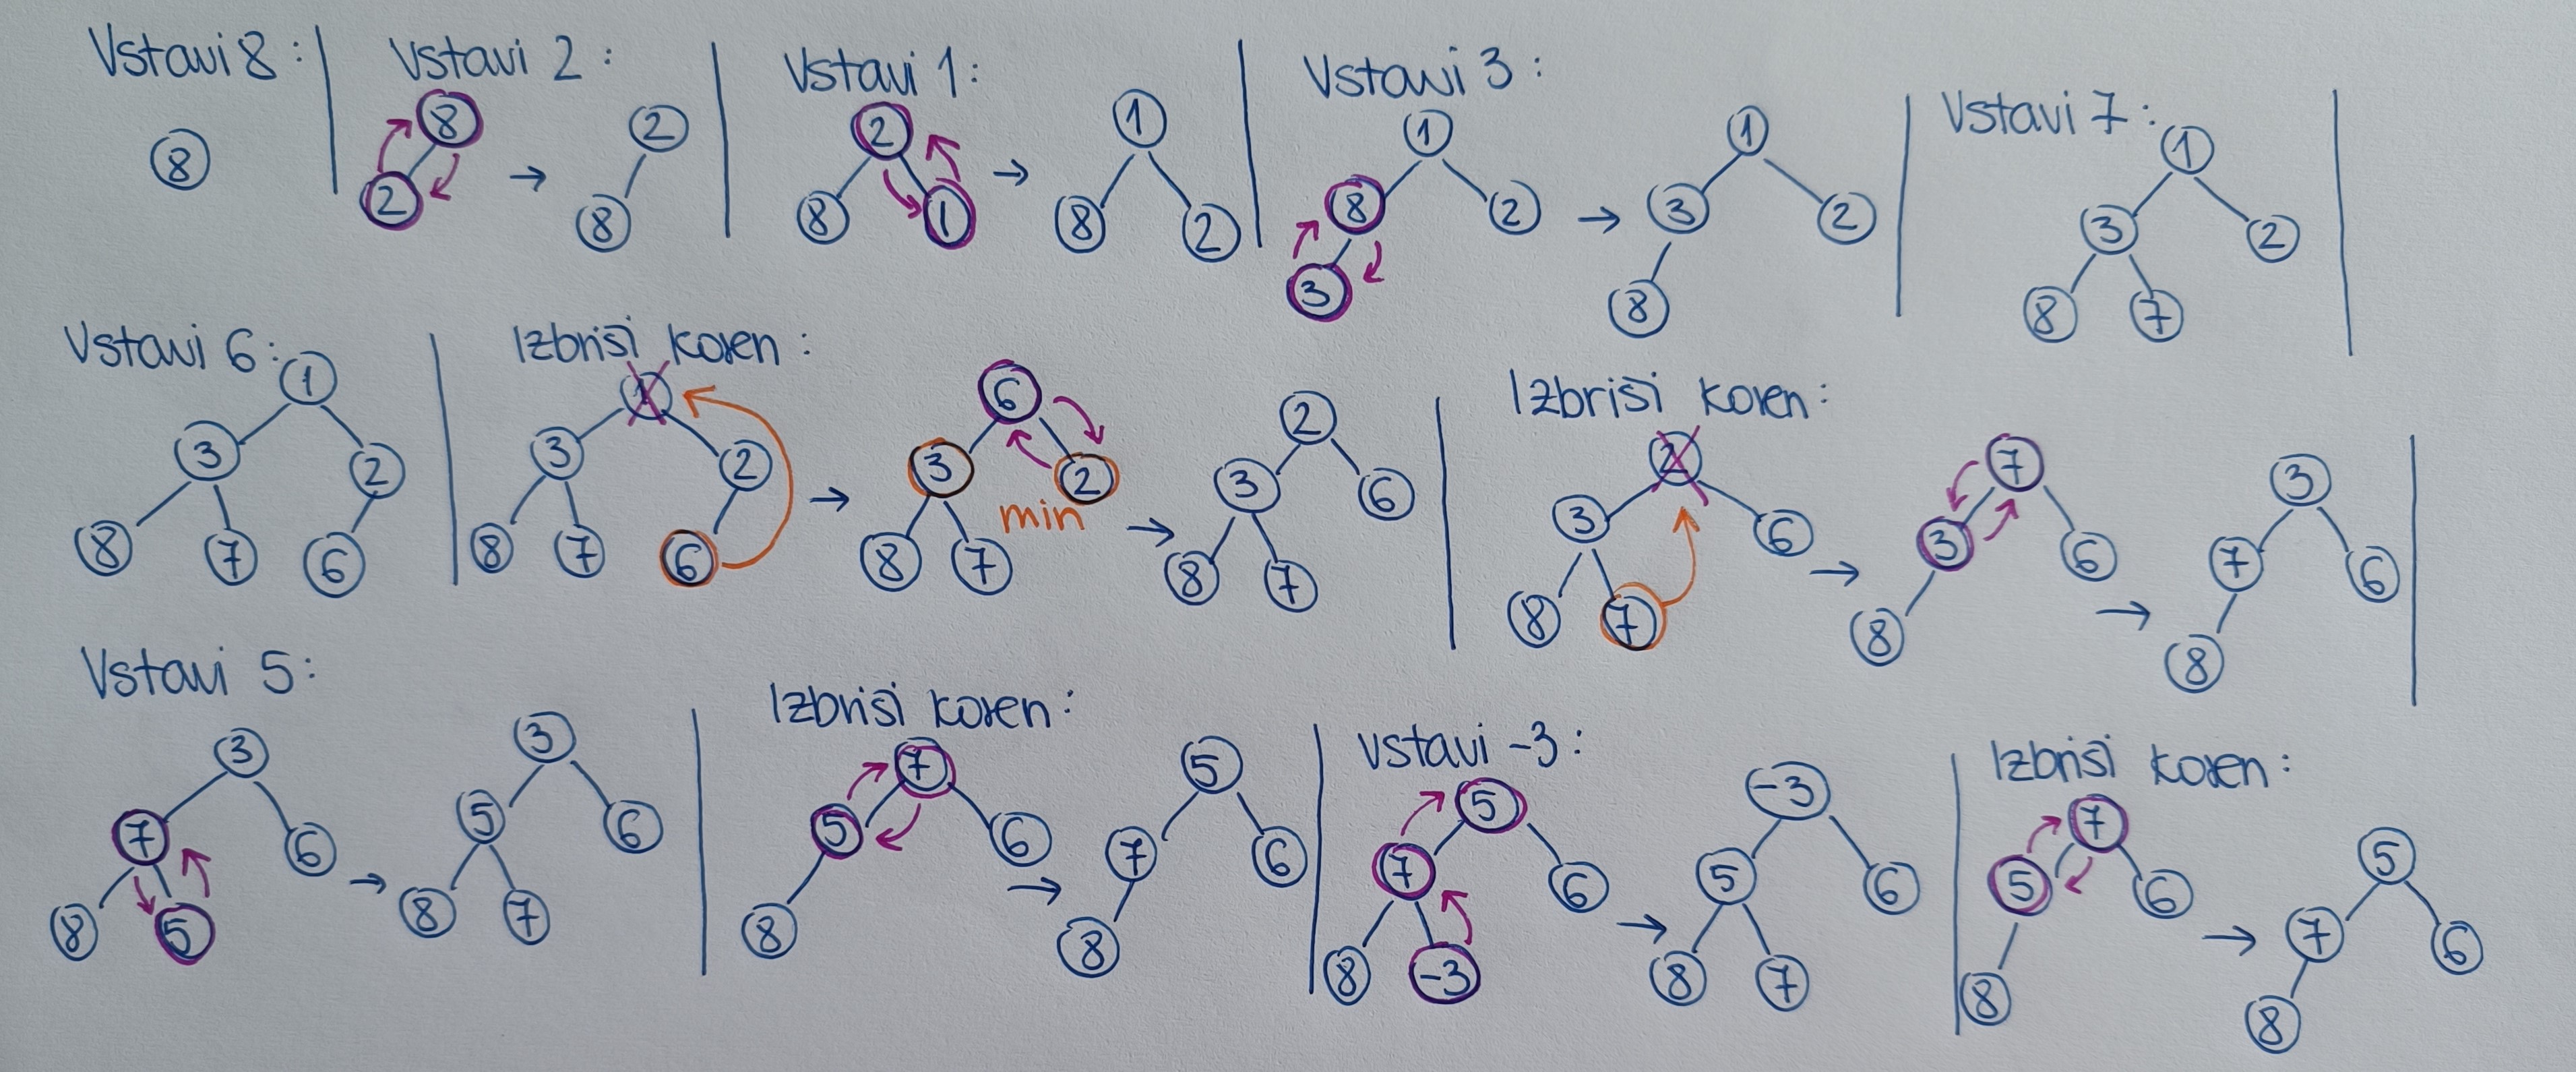 Vstavi 8:
8
Vstavi 2:
8
2
→
2
8
Vstavi 1:
2
8 1
→
1
8 2
Vstavi 3:
1
8 2
3
→
1
3 2
8
Vstavi 7:
1
3 2
8 7
Vstavi 6:
1
3 2
8 7 6
Izbrisi koren:
1
3 2
8 7 6
→
6
3 2
min
8 7
→
2
3 6
8 7
Izbrisi koren:
2
3 6
8 7
→
7
3 6
8
→
3
7 6
8
Vstavi 5:
3
7 6
8 5
→
3
5 6
8 7
Izbrisi koren:
7
5 6
8
→
5
7 6
8
vstavi -3:
5
7 6
8 -3
→
-3
5 6
8 7
Izbrisi koren:
7
5 6
8
→
5
7 6
8